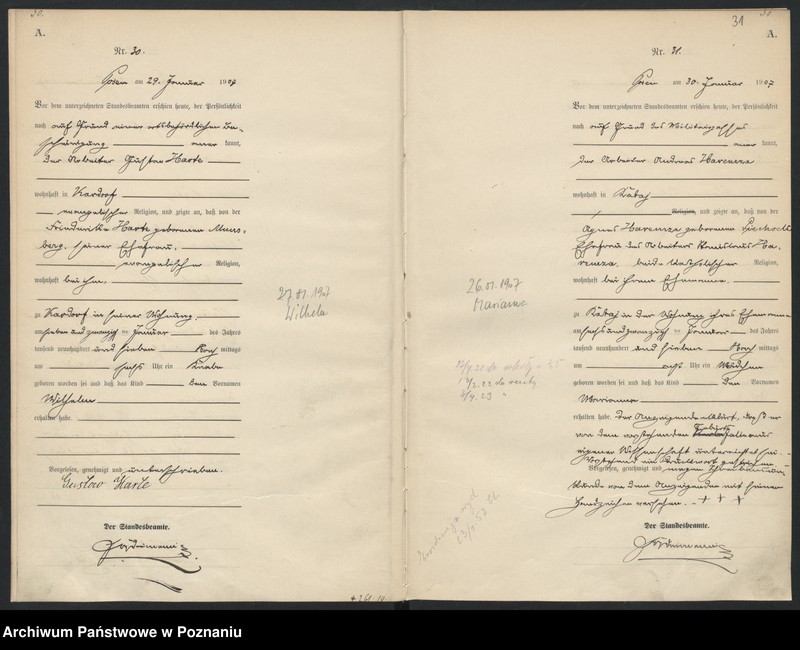 30.
A.
Nr. 30.
Posen am 29. Januar 1907
Vor dem unterzeichneten Standesbeamten erschien heute, der Persönlichkeit
nach auf Grund einer ortsbehördlichen Be-
scheinigung kannt,
der Arbeiter Gustav Harte
wohnhaft in
evangelischer Religion, und zeigte an, daß von der
Friederike Harte geborenen
berg, seiner Ehefrau,
evangelischer Religion,
wohnhaft bei ihm,
zu in seiner Wohnung,
am sieben und zwanzigsten Januar des Jahres
tausend neunhundert und sieben Nach mittags
um sechs Uhr ein Knabe
geboren worden sei und daß das Kind den Vornamen
Wilhelm
erhalten habe.
Vorgelesen, genehmigt und unterschrieben.
Gustav Harte
Der Standesbeamte.
27.01.1907
Wilhelm
31
A.
Nr. 31.
Posen am 30. Januar 1907
Vor dem unterzeichneten Standesbeamten erschien heute, der Persönlichkeit
nach auf Grund des Militärpasses
kannt,
der Arbeiter Andreas Haremza
wohnhaft in
Religion, und zeigte an, daß von der
Agnes Haremza geborenen
Ehefrau des Arbeiters Stanislaus Ha-
remza, beide katholischer Religion,
wohnhaft bei ihrem Ehemanne,
zu in der Wohnung ihres Ehemannes
am sechsundzwanzigsten Januar des Jahres
tausend neunhundert und sieben Nach mittags
um acht Uhr ein Mädchen
geboren worden sei und daß das Kind den Vornamen
Marianna
erhalten habe. Der Anzeigende erklärt, daß er
von dem vorstehenden Geburtsfalle aus
eigener Wissenschaft unterrichtet sei.
Vorstehend ein Druckwort gestrichen.
Vorgelesen, genehmigt und wegen
von dem Anzeigenden mit seinem
Handzeichen versehen. + + +
Der Standesbeamte.
26.01.1907
Marianna
Archiwum Państwowe w Poznaniu